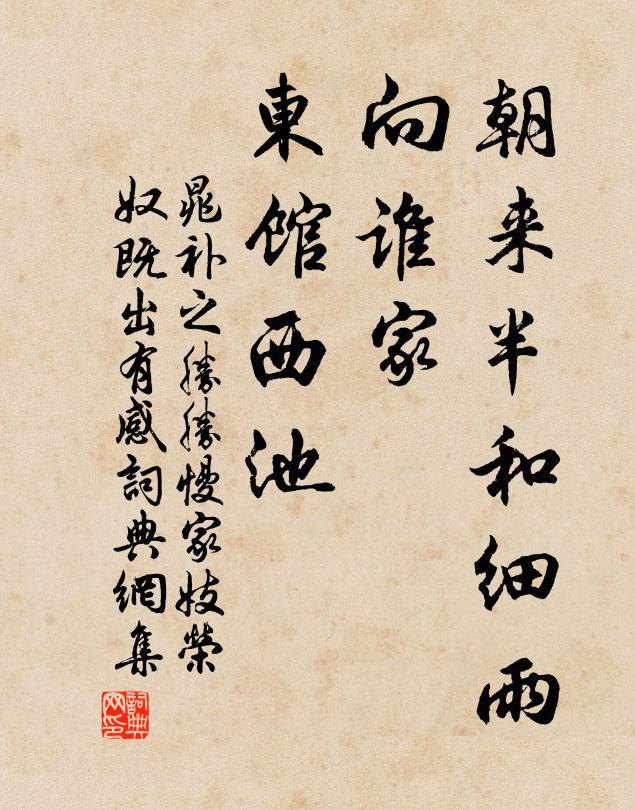 朝来半和细雨
向谁家
東馆西池
晁补之勝勝慢家妓榮
奴既出有感詞典網集
詞典网印